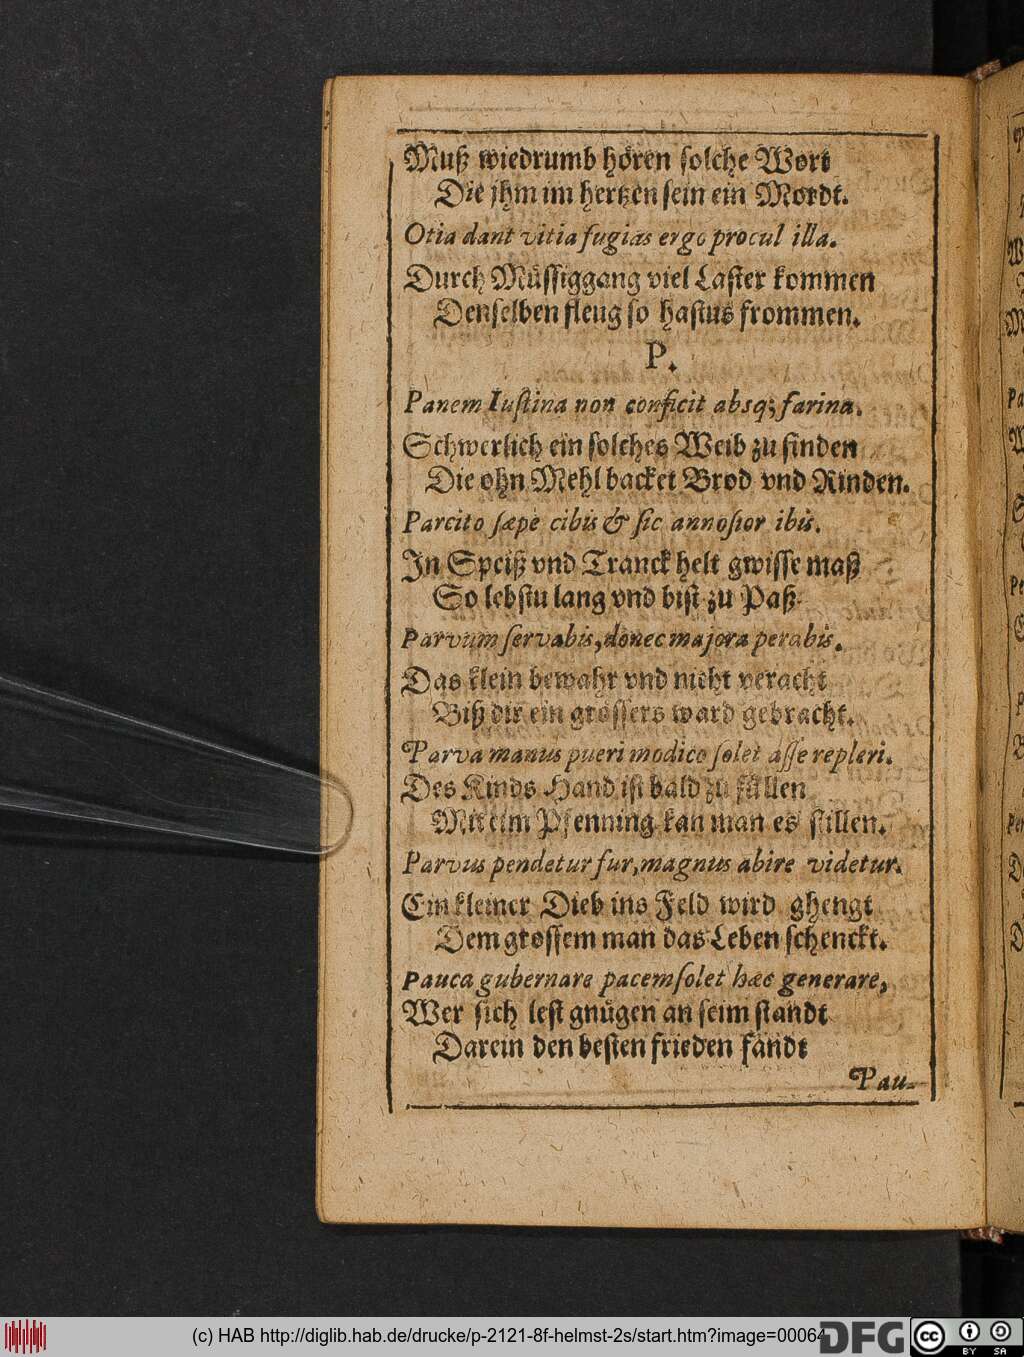 Muß wiedrumb hören solche Wort
Die jhm im hertzen sein ein Mordt.
Otia dant vitia fugias ergo procul illa.
Durch Müssiggang viel Laster kommen
Denselben fleug so hastus frommen.
P.
Panem Iustina non conficit absq; farina.
Schwerlich ein solches Weib zu finden
Die ohn Mehl backet Brod vnd Rinden.
Parcito sæpe cibis & sic annosior ibis.
In Speiß vnd Tranck helt gwisse maß
So lebstu lang vnd bist zu Paß.
Parvum servabis, donec majora parabis.
Das klein bewahr vnd nicht veracht
Biß dir ein grössers ward gebracht.
Parva manus pueri modico solet asse repleri.
Des Kinds Hand ist bald zu füllen
Mit eim Pfenning kan man es stillen.
Parvus pendetur fur, magnus abire videtur.
Ein kleiner Dieb ins Feld wird ghengt
Dem grossem man das Leben schenckt.
Pauca gubernare pacem solet hæc generare,
Wer sich lest gnügen an seim standt
Darein den besten frieden fandt
Pau-
(c) HAB http://diglib.hab.de/drucke/p-2121-8f-helmst-2s/start.htm?image=00064
DFG
cc BY SA